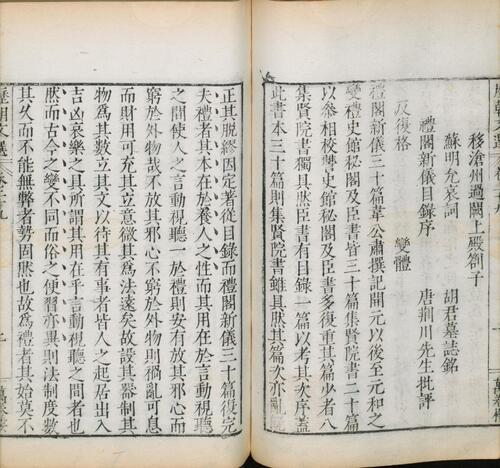 移滄州過闕上殿劄子
蘇明允哀詞 胡君墓誌銘
禮閣新儀目錄序 唐荆川先生批評
反復格 變體
禮閣新儀三十篇韋公肅撰記開元以後至元和之
變禮史館秘閣及臣書皆三十篇集賢院書二十篇
以參相校讐史館秘閣及臣書多復重其篇少者八
集賢院書獨具然臣書有目錄一篇以考其次序蓋
此書本三十篇則集賢院書雖具然其篇次亦亂
正其脫繆因定著從目錄而禮閣新儀三十篇復完
夫禮者其本在於養人之性而其用在於言動視聽
之間使人之言動視聽一於禮則安有放其邪心而
窮於外物哉不放其邪心不窮於外物則禍亂可息
而財用可充其立意微其爲法遠矣故設其器制其
物爲其數立其文以待其有事者皆人之起居出入
吉凶哀樂之具所謂其用在乎言動視聽之間者也
然而古今之變不同而俗之便習亦異則法制度數
其久而不能無弊者勢固然也故爲禮者其始莫不
歷朝文選